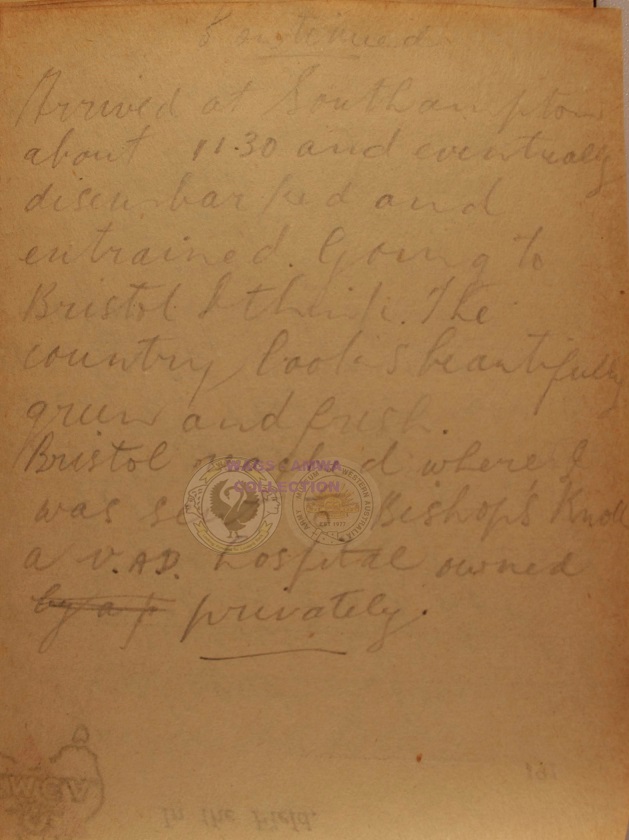 Continued
Arrived at Southampton
about 11.30 and eventually
disembarked and
entrained. Going to
Bristol I think. The
country looks beautifully
green and fresh.
Bristol reached where I
was Bishop's Knoll
a V.A.D. hospital owned
by a p privately.
MAGS ANWA
COLLECTION
In the Field.